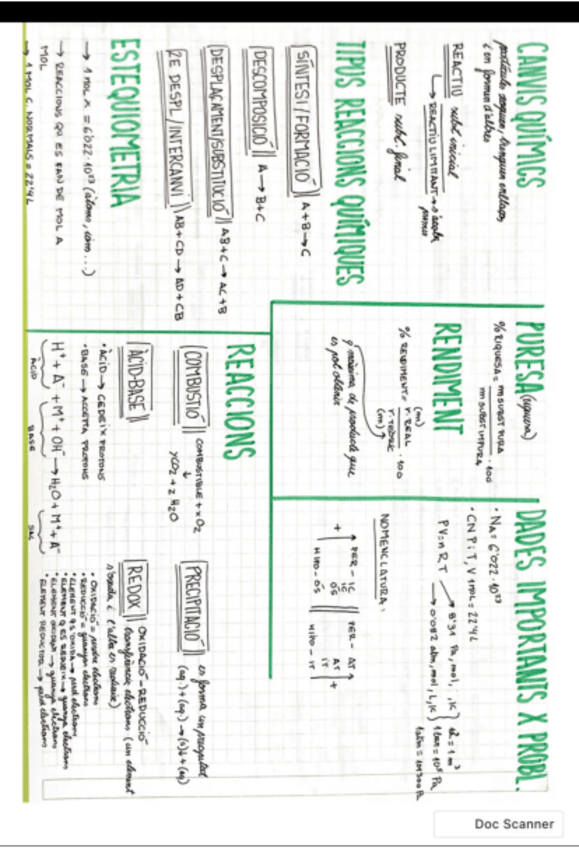 CANVIS QUÍMICS
partícules xoquen, trenquen enllaços
i en formen d'altres
REACTIU subst inicial
→ REACTIU LIMITANT → s'acaba
primer
PRODUCTE subst. final
TIPUS REACCIONS QUÍMIQUES
SÍNTESI/FORMACIÓ || A + B → C
DESCOMPOSICIÓ || A → B + C
DESPLAÇAMENT/SUBSTITUCIÓ || AB + C → AC + B
2E DESPL/INTERCANVI || AB + CD → AD + CB
ESTEQUIOMETRIA
→ 1 mol x = 6'022·10²³ (àtoms, ions...)
→ REACCIONS QU ES FAN DE MOL A
MOL
→ 1 MOL C. NORMALS = 22'4L
PURESA (riquesa)
% RIQUESA = m SUBST PURA / m SUBST IMPURA · 100
RENDIMENT
% RENDIMENT = (m) r. REAL / (m) r. TEÒRIC · 100
q màxima de producte que
es pot obtenir
DADES IMPORTANTS X PROBL.
· NA = 6'022·10²³
· CN P i T, V 1 MOL = 22'4L
PV = nRT
→ 8'31 Pa, mol, , K
→ 0'082 atm, mol, L, K
= 1 m³
1 bar = 10⁵ Pa
1 atm = 101300 Pa
NOMENCLATURA:
+ ↑ PER - IC || PER - AT ↑ +
ÓS || IT
HIPO - ÓS || HIPO - IT
REACCIONS
COMBUSTIÓ || COMBUSTIBLE + x O2
↓
yCO2 + z H2O
ÀCID-BASE ||
· ÀCID → CEDEIX PROTONS
· BASE → ACCEPTA PROTONS
H⁺ + A⁻ + M⁺ + OH⁻ → H2O + M⁺ + A⁻
ÀCID BASE SAL
PRECIPITACIÓ || es forma un precipitat
(aq) + (aq) → (s)↓ + (aq)
REDOX || OXIDACIÓ - REDUCCIÓ
transferència electrons (un element
s'oxida i l'altre es redueix)
· OXIDACIÓ = perdre electrons
· REDUCCIÓ = guanyar electrons
· ELEMENT Q S'OXIDA → perd electrons
· ELEMENT Q ES REDUEIX → guanya electrons
· ELEMENT OXIDANT → guanya electrons
· ELEMENT REDUCTOR → perd electrons
Doc Scanner